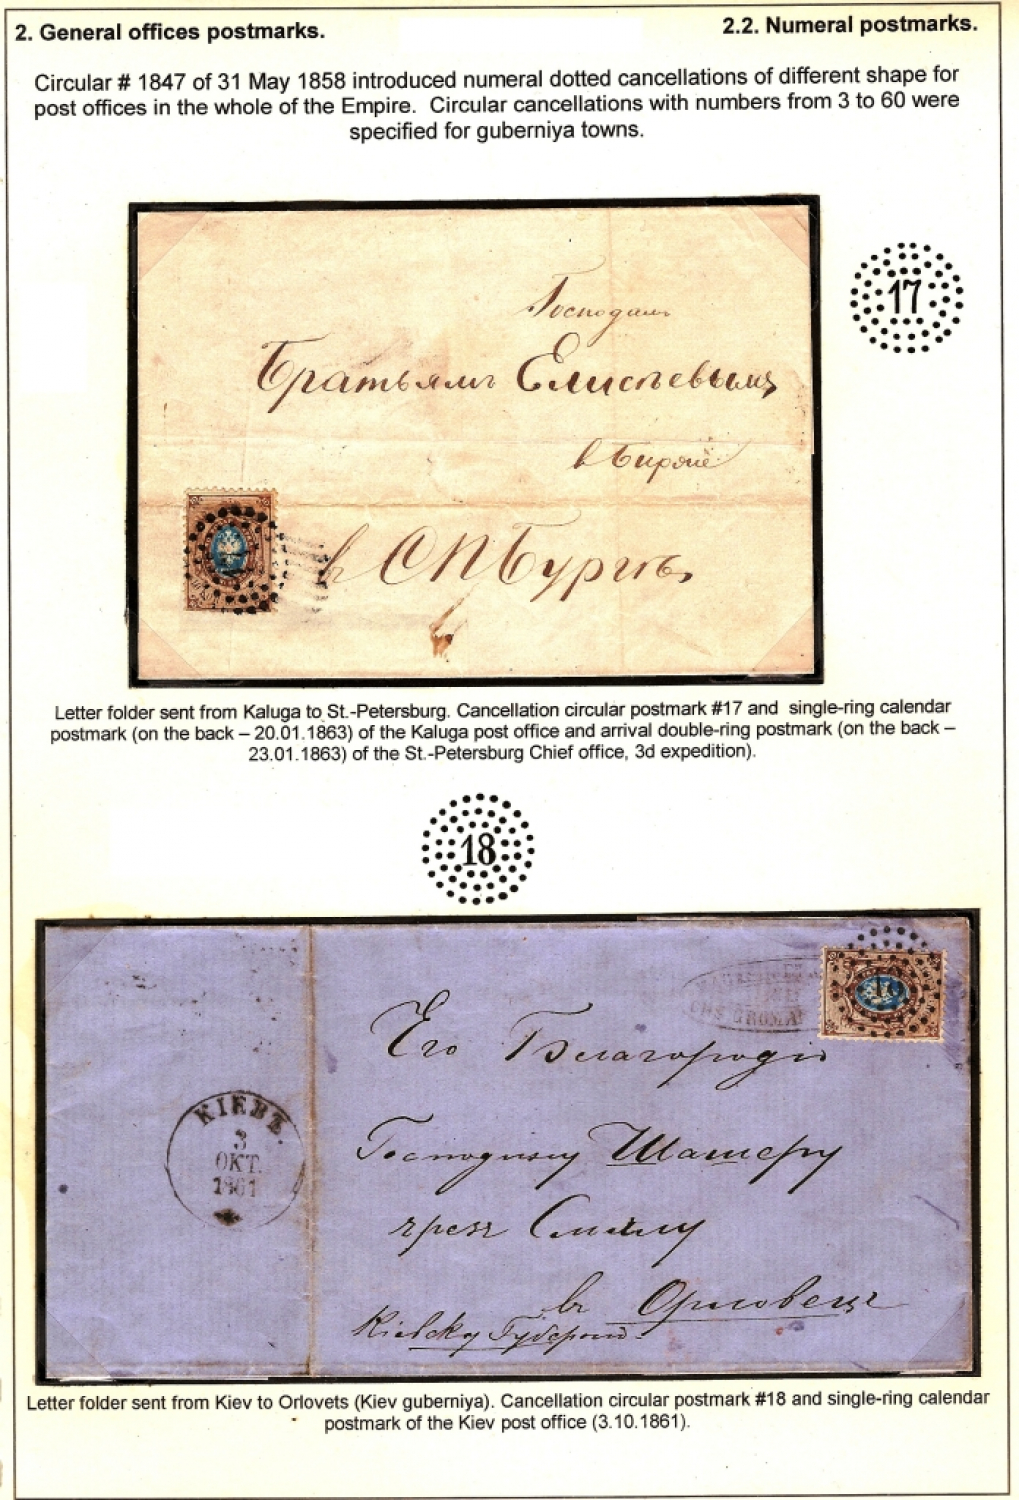 2. General offices postmarks.
2.2. Numeral postmarks.
Circular # 1847 of 31 May 1858 introduced numeral dotted cancellations of different shape for
post offices in the whole of the Empire. Circular cancellations with numbers from 3 to 60 were
specified for guberniya towns.
17
Господамъ
Братьямъ Елисѣевымъ
в Биржѣ
в СПБургъ
Letter folder sent from Kaluga to St.-Petersburg. Cancellation circular postmark #17 and single-ring calendar
postmark (on the back – 20.01.1863) of the Kaluga post office and arrival double-ring postmark (on the back –
23.01.1863) of the St.-Petersburg Chief office, 3d expedition).
18
Его Благородію
КІЕВЪ.
3
ОКТ.
1861
Господину Шашеру
чрезъ Смѣлу
въ Орловецъ
Letter folder sent from Kiev to Orlovets (Kiev guberniya). Cancellation circular postmark #18 and single-ring calendar
postmark of the Kiev post office (3.10.1861).